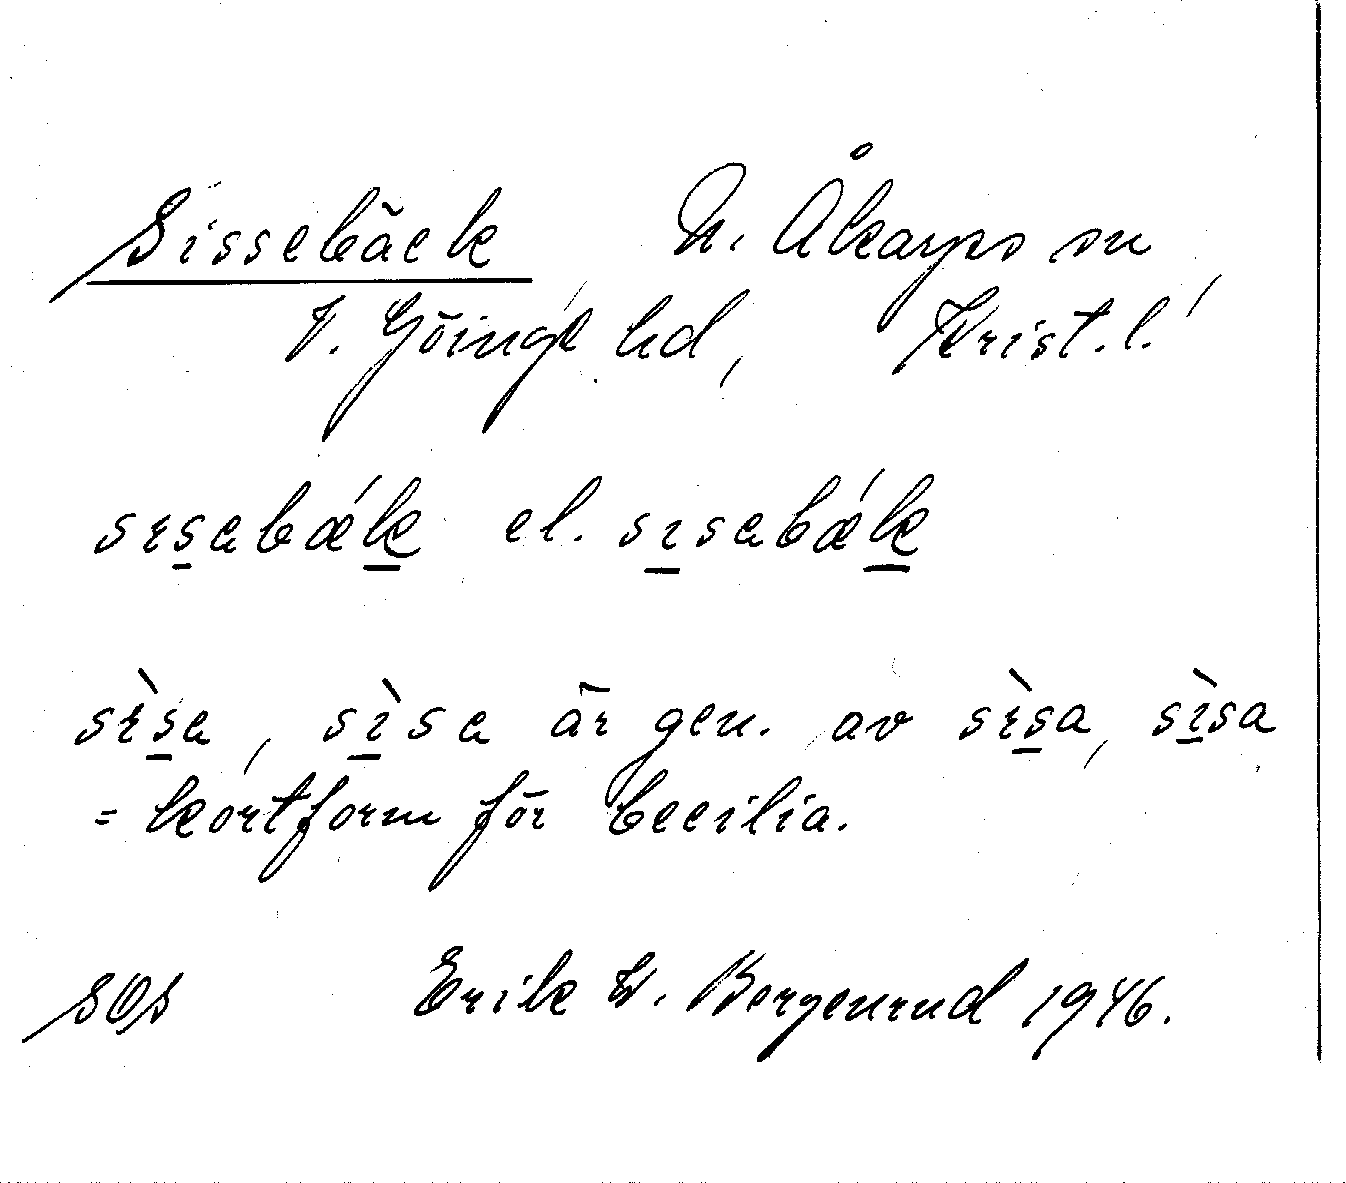 Sissebäck N. Åkarps sn,
V. Göinge hd, Krist. l.
sɪs̲ebǽk̲ el. sɪ̲sebǽk̲
sɪ̀s̲e, sɪ̲̀se är gen. av sɪ̀s̲a, sɪ̲̀sa
= kortform för Cecilia.
SOS Erik W. Bergenrud 1946.